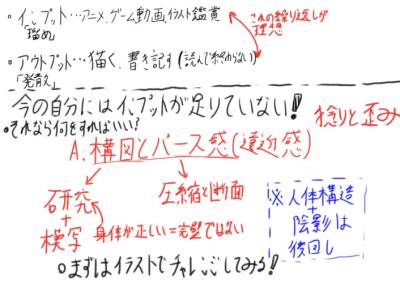 ・インプット…アニメ、ゲーム動画、イラスト鑑賞
「溜め」
これの繰り返しが
理想
・アウトプット…描く、書き記す(読んで終わらない)
「発散」
今の自分にはインプットが足りていない!!
・それなら何をすればいい?
捻りと歪み
A.構図とパース感(遠近感)
研究
+
模写
圧縮と断面
身体が正しい=完璧ではない
※人体構造
+
陰影は
後回し
・まずはイラストでチャレンジしてみる!!